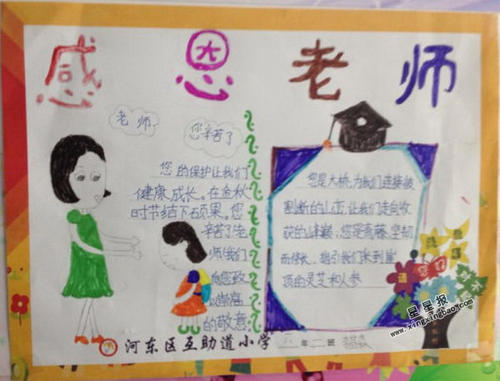 感恩老师
老师
您辛苦了
您的保护让我们
健康成长。在金秋
时节结下硕果。您
辛苦了老
师我们
向您致
以崇高
的敬意
您是大桥,为我们连接被
割断的山峦,让我们走向收
获的峰巅;您是青藤,坚韧
而修长,指引我们采到崖
顶的灵芝和人参
河东区互助道小学
年二班
星星报
www.xingxingbao.com